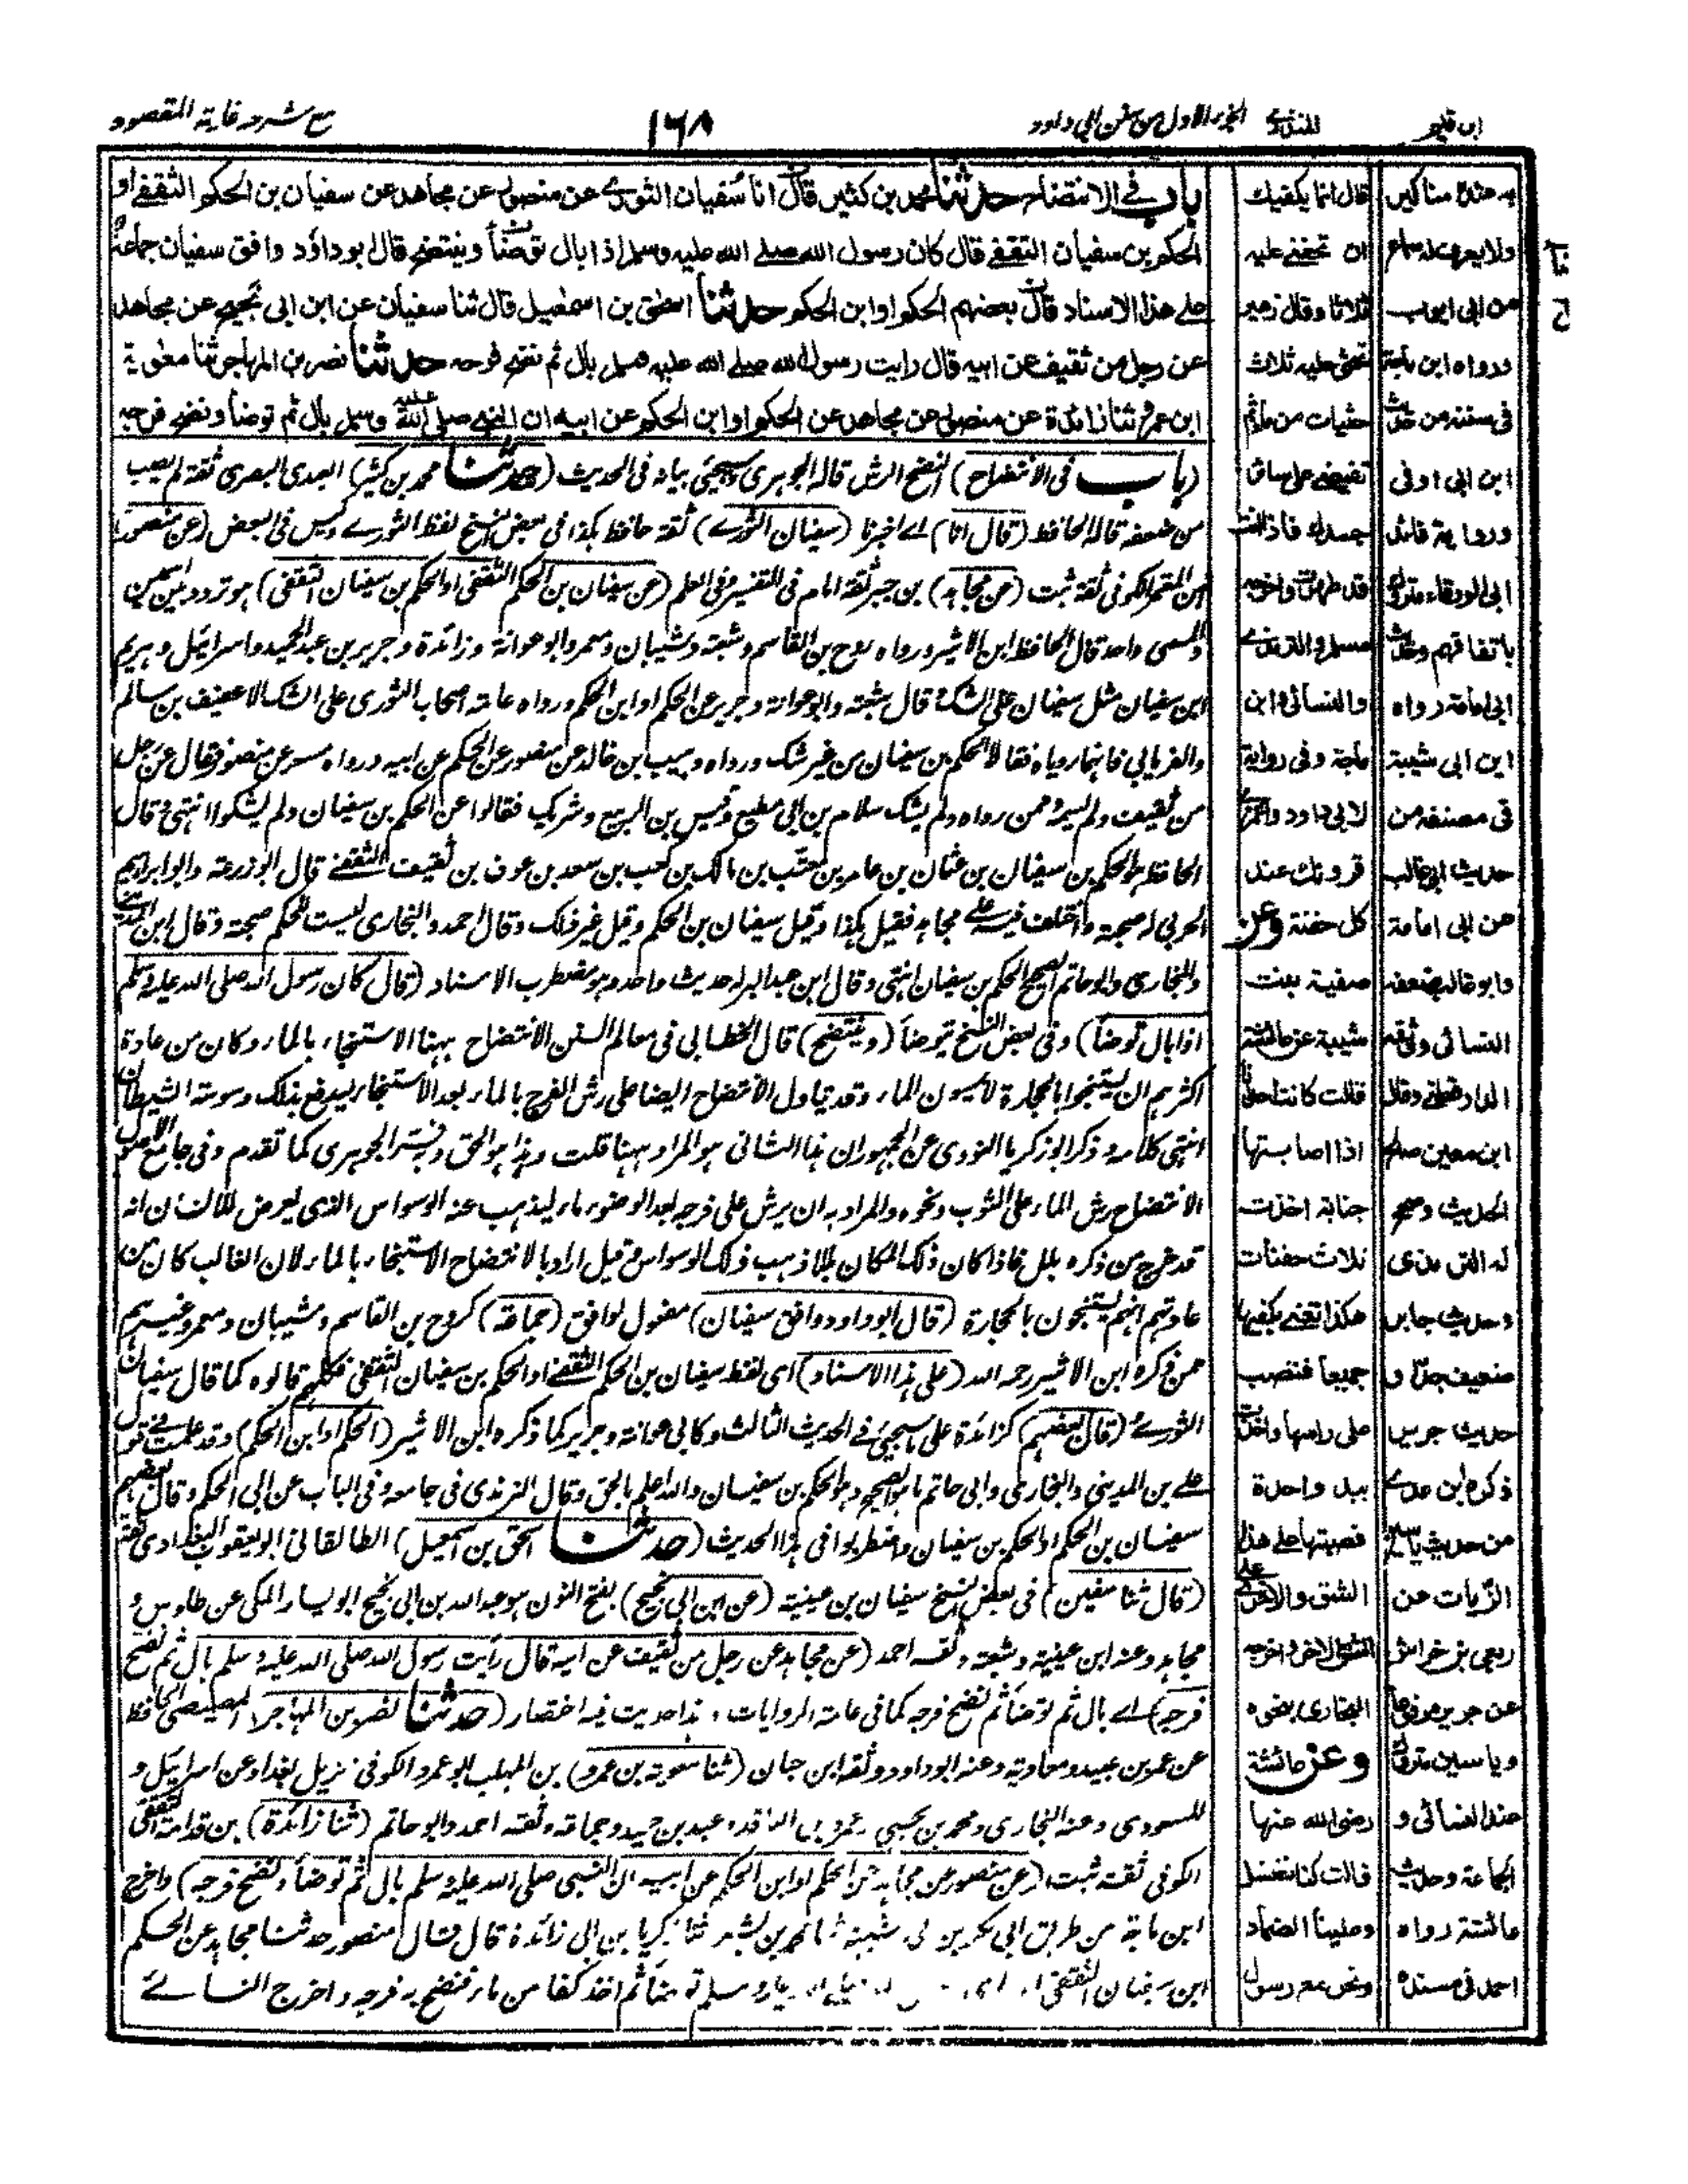 ابن قيم
المنذري
الجزء الاول من سنن ابي داود
١٦٨
مع شرحه غاية المقصود
باب في الانتضاح حدثنا محمد بن كثير قال انا سفيان الثوري عن منصور عن مجاهد عن سفيان بن الحكم الثقفي او
الحكم بن سفيان الثقفي قال كان رسول الله صلى الله عليه وسلم اذا بال توضأ وينتضح قال ابو داؤد وافق سفيان جماعة
على هذا الاسناد قال بعضهم الحكم او ابن الحكم حدثنا اسحق بن اسمعيل قال ثنا سفيان عن ابن ابي نجيح عن مجاهد
عن رجل من ثقيف عن ابيه قال رايت رسول الله صلى الله عليه وسلم بال ثم نضح فرجه حدثنا نصر بن المهاجر ثنا معوية
ابن عمرو ثنا زائدة عن منصور عن مجاهد عن الحكم او ابن الحكم عن ابيه ان النبي صلى الله عليه وسلم بال ثم توضأ ونضح فرجه
(باب في الانتضاح) النضح الرش قاله الجوهري وسيجئ بيانه في الحديث (حدثنا محمد بن كثير) العبدي البصري ثقة لم يصب
من ضعفه قاله الحافظ (قال انا) اے اخبرنا (سفيان الثوري) ثقة حافظ هكذا في بعض النسخ لفظ الثوري وليس في البعض (عن منصور)
ابن المعتمر الكوفي ثقة ثبت (عن مجاهد) بن جبر ثقة امام في التفسير وفي العلم (عن سفيان بن الحكم الثقفي او الحكم بن سفيان الثقفي) هو تردد بين اسمين
والمسمى واحد قال الحافظ ابن الاثير ورواه روح بن القاسم وشعبة وشيبان ومعمر وابو عوانة وزائدة وجرير بن عبد الحميد واسرائيل وهريم
ابن سفيان مثل سفيان على الشك قال شعبة وابو عوانة وجرير عن الحكم او ابن الحكم ورواه عامة اصحاب الثوري على الشك الا عفيف بن سالم
والفريابي فانهما روياه فقالا الحكم بن سفيان من غير شك ورواه وهيب بن خالد عن منصور عن الحكم عن ابيه ورواه مسعر عن منصور فقال عن رجل
من ثقيف ولم يسمه وممن رواه ولم يشك سلام بن ابي مطيع وقيس بن الربيع وشريك فقالوا عن الحكم بن سفيان ولم يشكوا انتهى وقال
الحافظ هو الحكم بن سفيان بن عثمان بن عامر بن معتب بن مالك بن كعب بن سعد بن عوف بن ثقيف الثقفي قال ابو زرعة وابو ابراهيم
الحربي له صحبة واختلف فيه على مجاهد فقيل هكذا وقيل سفيان بن الحكم وقيل غير ذلك وقال احمد والبخاري ليست للحكم صحبة وقال ابن المديني
والبخاري وابو حاتم الصحيح الحكم بن سفيان انتهى وقال ابن عبد البر له حديث واحد وهو مضطرب الاسناد (قال كان رسول الله صلى الله عليه وسلم
اذا بال توضأ) وفي بعض النسخ يتوضأ (وينتضح) قال الخطابي في معالم السنن الانتضاح ههنا الاستنجاء بالماء وكان من عادة
اكثرهم ان يستنجوا بالحجارة لا يمسون الماء وقد يتاول الانتضاح ايضا على رش الفرج بالماء بعد الاستنجاء ليدفع بذلك وسوسة الشيطان
انتهى كلامه وذكر ابو زكريا النووي عن الجمهور ان هذا الثاني هو المراد ههنا قلت وهذا هو الحق وفسر الجوهري كما تقدم وفي جامع الاصول
الانتضاح رش الماء على الثوب ونحوه والمراد به ان يرش على فرجه بعد الوضوء ماء ليذهب عنه الوسواس الذي يعرض للانسان انه
قد خرج من ذكره بلل فاذا كان ذلك المكان بللا ذهب ذلك الوسواس وقيل اراد بالانتضاح الاستنجاء بالماء لان الغالب كان من
عادتهم انهم يستنجون بالحجارة (قال ابو داود وافق سفيان) مفعول لوافق (جماعة) كروح بن القاسم وشيبان ومعمر وغيرهم
ممن ذكره ابن الاثير رحمه الله (على هذا الاسناد) اي لفظ سفيان بن الحكم الثقفي او الحكم بن سفيان الثقفي فكلهم قالوه كما قال سفيان
الثوري (قال بعضهم) كزائدة على ما سيجئ في الحديث الثالث وكابي عوانة وجرير كما ذكره ابن الاثير (الحكم او ابن الحكم) وقد علمت في قول
علي بن المديني والبخاري وابي حاتم ما هو الصحيح وهو الحكم بن سفيان والله اعلم بالحق وقال الترمذي في جامعه وفي الباب عن ابي الحكم وقال بعضهم
سفيان بن الحكم او الحكم بن سفيان واضطربوا في هذا الحديث (حدثنا اسحق بن اسمعيل) الطالقاني ابو يعقوب البغدادي ثقة
(قال ثنا سفين) في بعض النسخ سفيان بن عيينة (عن ابن ابي نجيح) بفتح النون هو عبد الله بن ابي نجيح ابو يسار المكي عن طاوس و
مجاهد وعنه ابن عيينة وشعبة وثقه احمد (عن مجاهد عن رجل من ثقيف عن ابيه قال رأيت رسول الله صلى الله عليه وسلم بال ثم نضح
فرجه) اے بال ثم توضأ ثم نضح فرجه كما في عامة الروايات، هذا حديث فيه اختصار (حدثنا نصر بن المهاجر) المصيصي الحافظ
عن عمر بن عبيد ومعاوية وعنه ابو داود وثقه ابن حبان (ثنا معوية بن عمرو) بن المهلب ابو عمرو الكوفي نزيل بغداد عن اسرائيل و
المسعودي وعنه البخاري ومحمد بن يحيى وعمرو الناقد وعبد بن حميد وجماعة وثقه احمد وابو حاتم (ثنا زائدة) بن قدامة الثقفي
الكوفي ثقة ثبت (عن منصور عن مجاهد عن الحكم او ابن الحكم عن ابيه ان النبي صلى الله عليه وسلم بال ثم توضأ ونضح فرجه) واخرج
ابن ماجة من طريق ابي بكر بن ابي شيبة ثنا محمد بن بشر ثنا زكريا بن ابي زائدة قال قال منصور حدثنا مجاهد عن الحكم
ابن سفيان الثقفي توضأ ثم اخذ كفا من ماء فنضح به فرجه واخرج النسائے
قال انما يكفيك
ان تحفني عليه
ثلاثا وقال زهير
تحثي عليه ثلاث
حثيات من ماء ثم
تفيضي على سائر
جسدك فاذا انت
قد طهرت واخرجه
مسلم والترمذي
والنسائي وابن
ماجة وفي رواية
لابي داود واغمزي
قرونك عند
كل حفنة وعن
صفية بنت
شيبة عن عائشة
قالت كانت احدانا
اذا اصابتها
جنابة اخذت
ثلاث حفنات
هكذا تعني بكفيها
جميعا فتصب
على راسها واخذت
بيد واحدة
فصبتها على هذا
الشق والاخرى على
الشق الاخر واخرجه
البخاري بنحوه
وعن عائشة
رضي الله عنها
قالت كنا نغتسل
وعلينا الضماد
ونحن مع رسول
به عنده مناكير
ولا يعرف له سماع
من ابي ايوب
ورواه ابن ماجة
في سننه من حديث
ابن ابي اوفى
ورواية فائد
ابي الورقاء متروك
باتفاقهم وحديث
ابي امامة رواه
ابن ابي شيبة
في مصنفه من
حديث ابي غالب
عن ابي امامة
وابو غالب ضعفه
النسائي ووثقه
الدارقطني وقال
ابن معين صالح
الحديث وصحح
له الترمذي
وحديث جابر
ضعيف جدا و
حديث جرير
ذكره ابن عدي
من حديث ياسين
الزيات عن
ربعي بن خراش
عن جرير مرفوعا
وياسين متروك
عند النسائي و
الجماعة وحديث
عائشة رواه
احمد في مسنده